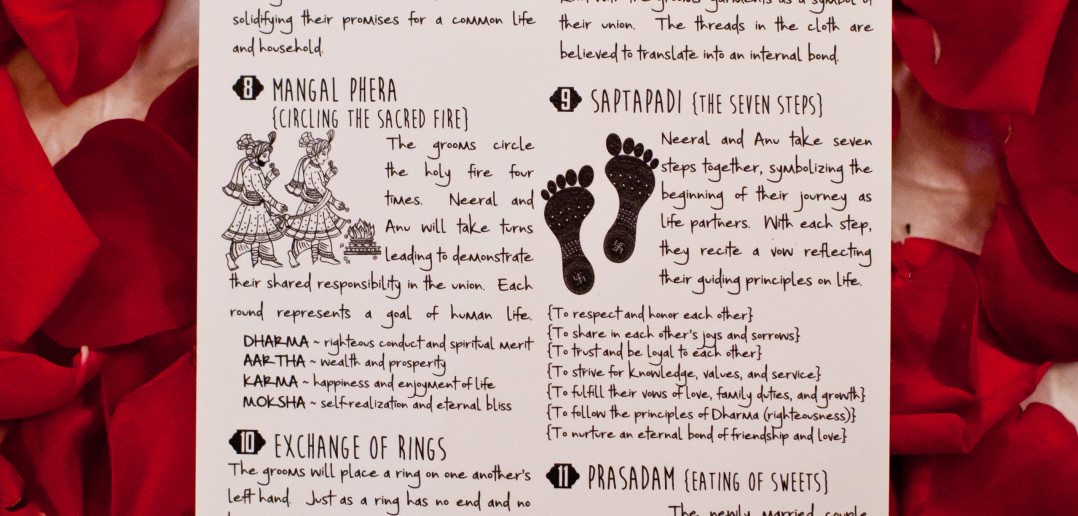 solidifying their promises for a common life
and household.
garments as a symbol of
their union. The threads in the cloth are
believed to translate into an internal bond.
8 MANGAL PHERA
{CIRCLING THE SACRED FIRE}
The grooms circle
the holy fire four
times. Neeral and
Anu will take turns
leading to demonstrate
their shared responsibility in the union. Each
round represents a goal of human life.
DHARMA ~ righteous conduct and spiritual merit
AARTHA ~ wealth and prosperity
KARMA ~ happiness and enjoyment of life
MOKSHA ~ self-realization and eternal bliss
9 SAPTAPADI {THE SEVEN STEPS}
Neeral and Anu take seven
steps together, symbolizing the
beginning of their journey as
life partners. With each step,
they recite a vow reflecting
their guiding principles on life.
{To respect and honor each other}
{To share in each other's joys and sorrows}
{To trust and be loyal to each other}
{To strive for knowledge, values, and service}
{To fulfill their vows of love, family duties, and growth}
{To follow the principles of Dharma (righteousness)}
{To nurture an eternal bond of friendship and love}
10 EXCHANGE OF RINGS
The grooms will place a ring on one another's
left hand. Just as a ring has no end and no
11 PRASADAM {EATING OF SWEETS}
The newly married couple